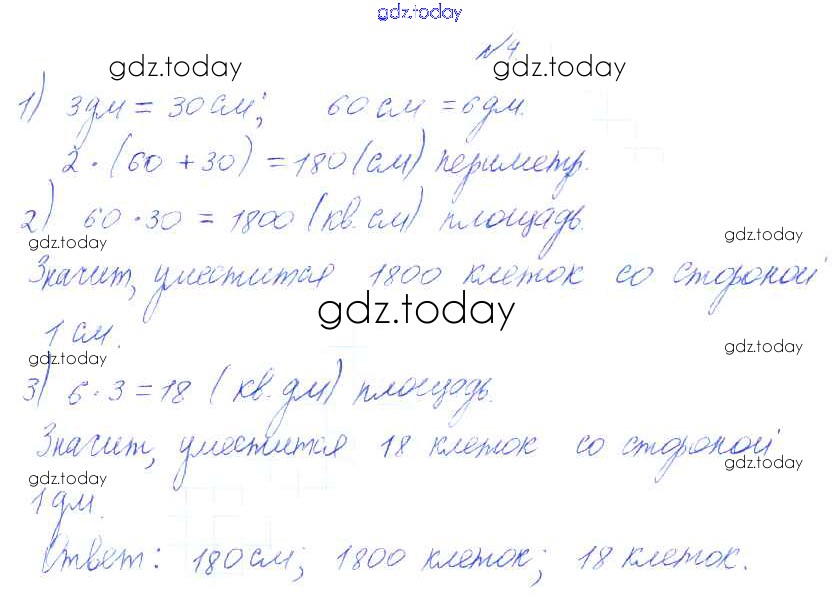 gdz.today
№4
gdz.today gdz.today
1) 3 дм = 30 см; 60 см = 6 дм.
2 · (60 + 30) = 180 (см) периметр.
2) 60 · 30 = 1800 (кв. см) площадь.
gdz.today gdz.today
Значит, уместится 1800 клеток со стороной
gdz.today
1 см.
gdz.today gdz.today
3) 6 · 3 = 18 (кв. дм) площадь.
Значит, уместится 18 клеток со стороной
gdz.today gdz.today
1 дм.
Ответ: 180 см; 1800 клеток; 18 клеток.